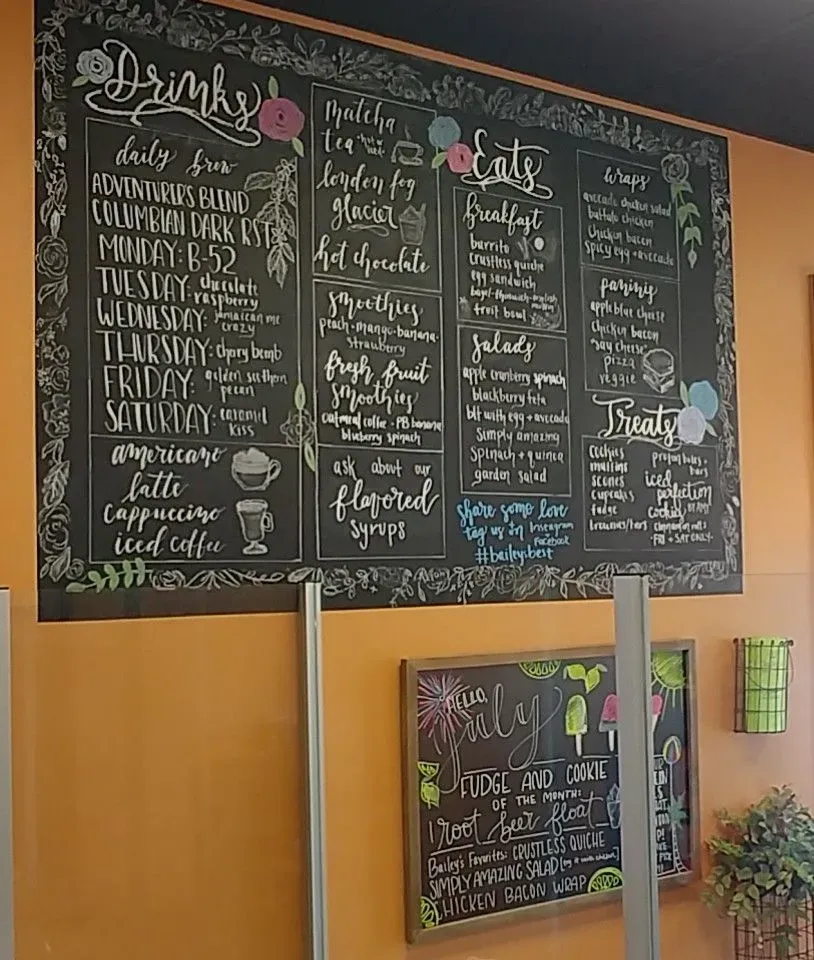 Drinks
daily brew
ADVENTURERS BLEND
COLUMBIAN DARK RST
MONDAY: B-52
TUESDAY: chocolate
raspberry
WEDNESDAY: jamaican me
crazy
THURSDAY: cherry bomb
FRIDAY: golden southern
pecan
SATURDAY: caramel
kiss
americano
latte
cappuccino
iced coffee
matcha
tea
london fog
glacier
hot chocolate
smoothies
peach-mango-banana-
strawberry
fresh fruit
smoothies
oatmeal coffee - PB banana
blueberry spinach
ask about our
flavored
syrups
Eats
breakfast
burrito
crustless quiche
egg sandwich
fruit bowl
salads
apple cranberry spinach
blackberry feta
blt with egg + avocado
simply amazing
spinach + quinoa
garden salad
share some love
tag us in Instagram
Facebook
#baileysbest
wraps
avocado chicken salad
buffalo chicken
chicken bacon
spicy egg + avocado
paninis
apple blue cheese
chicken bacon
"say cheese"
pizza
veggie
Treats
cookies
muffins
scones
cupcakes
fudge
brownies/bars
protein bites +
bars
iced
perfection
cookies BY AMY
cinnamon rolls
-FRI + SAT ONLY-
HELLO,
July
FUDGE AND COOKIE
OF THE MONTH:
root beer float
Bailey's Favorites: CRUSTLESS QUICHE
SIMPLY AMAZING SALAD [try it with chicken]
CHICKEN BACON WRAP